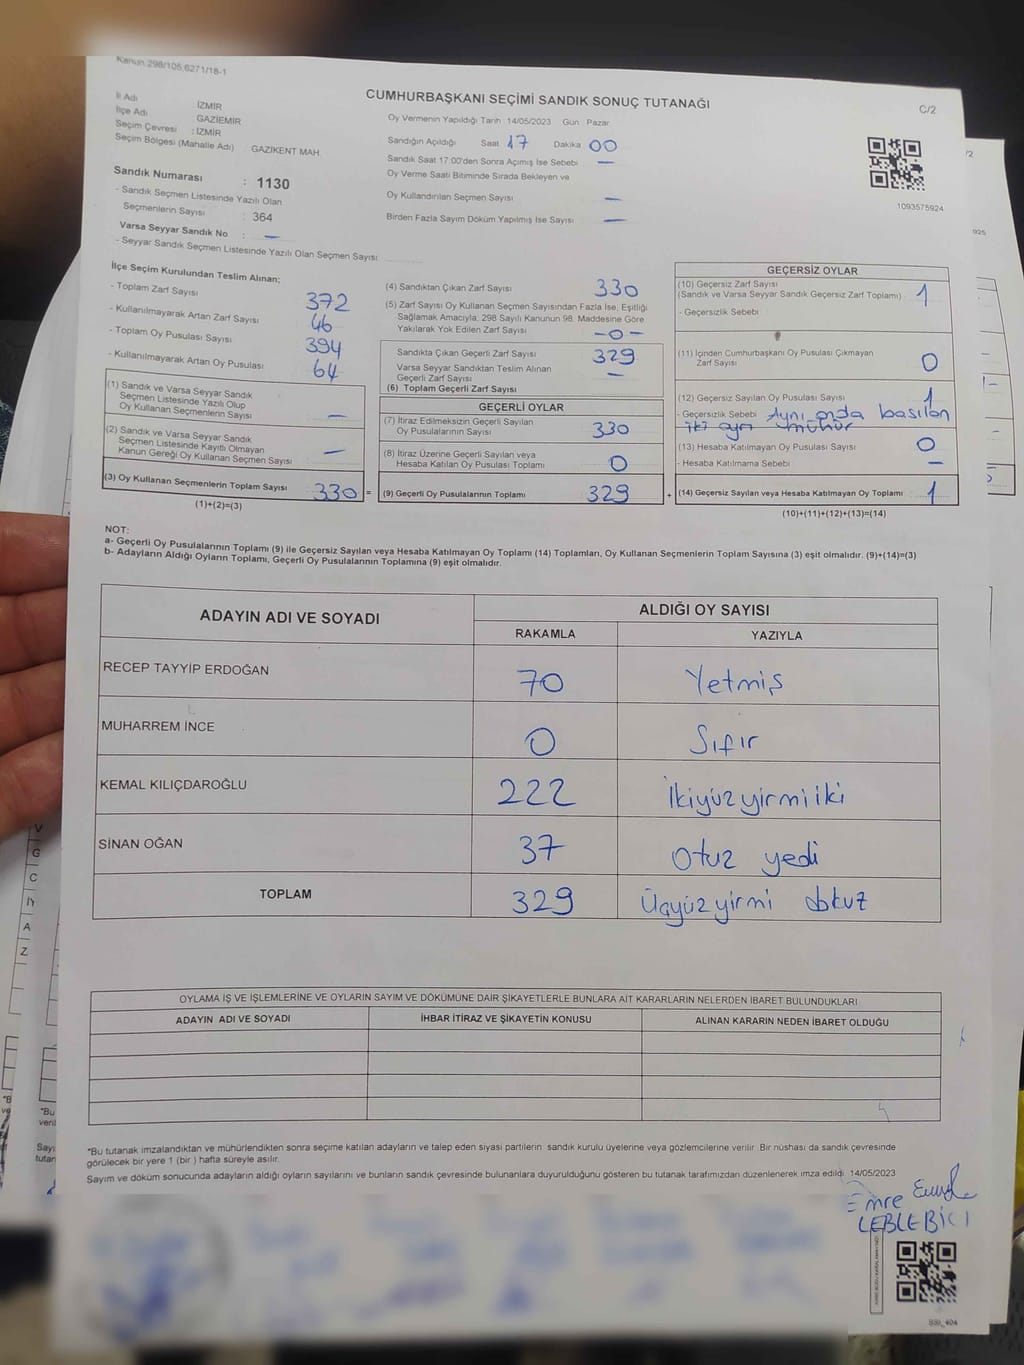 Kanun:298/105,6271/18-1
CUMHURBAŞKANI SEÇİMİ SANDIK SONUÇ TUTANAĞI
C/2
İl Adı : İZMİR
İlçe Adı : GAZİEMİR
Seçim Çevresi : İZMİR
Seçim Bölgesi (Mahalle Adı) GAZİKENT MAH
Sandık Numarası : 1130
- Sandık Seçmen Listesinde Yazılı Olan
Seçmenlerin Sayısı : 364
Varsa Seyyar Sandık No : —
- Seyyar Sandık Seçmen Listesinde Yazılı Olan Seçmen Sayısı:
Oy Vermenin Yapıldığı Tarih :14/05/2023 Gün Pazar
Sandığın Açıldığı Saat 17 Dakika 00
Sandık Saat 17:00'den Sonra Açımış İse Sebebi —
Oy Verme Saati Bitiminde Sırada Bekleyen ve
Oy Kullandırılan Seçmen Sayısı —
Birden Fazla Sayım Döküm Yapılmış İse Sayısı —
1093575924
İlçe Seçim Kurulundan Teslim Alınan;
- Toplam Zarf Sayısı 372
- Kullanılmayarak Artan Zarf Sayısı 46
- Toplam Oy Pusulası Sayısı 394
- Kullanılmayarak Artan Oy Pusulası 64
(1) Sandık ve Varsa Seyyar Sandık
Seçmen Listesinde Yazılı Olup
Oy Kullanan Seçmenlerin Sayısı —
(2) Sandık ve Varsa Seyyar Sandık
Seçmen Listesinde Kayıtlı Olmayan
Kanun Gereği Oy Kullanan Seçmen Sayısı —
(3) Oy Kullanan Seçmenlerin Toplam Sayısı 330 =
(1)+(2)=(3)
(4) Sandıktan Çıkan Zarf Sayısı 330
(5) Zarf Sayısı Oy Kullanan Seçmen Sayısından Fazla İse, Eşitliği
Sağlamak Amacıyla, 298 Sayılı Kanunun 98. Maddesine Göre
Yakılarak Yok Edilen Zarf Sayısı -0-
Sandıkta Çıkan Geçerli Zarf Sayısı 329
Varsa Seyyar Sandıktan Teslim Alınan
Geçerli Zarf Sayısı —
(6) Toplam Geçerli Zarf Sayısı
GEÇERLİ OYLAR
(7) İtiraz Edilmeksizin Geçerli Sayılan
Oy Pusulalarının Sayısı 330
(8) İtiraz Üzerine Geçerli Sayılan veya
Hesaba Katılan Oy Pusulası Toplamı 0
(9) Geçerli Oy Pusulalarının Toplamı 329 +
GEÇERSİZ OYLAR
(10) Geçersiz Zarf Sayısı
(Sandık ve Varsa Seyyar Sandık Geçersiz Zarf Toplamı) 1
- Geçersizlik Sebebi
(11) İçinden Cumhurbaşkanı Oy Pusulası Çıkmayan
Zarf Sayısı 0
(12) Geçersiz Sayılan Oy Pusulası Sayısı 1
- Geçersizlik Sebebi Aynı anda basılan
iki ayrı mühür
(13) Hesaba Katılmayan Oy Pusulası Sayısı 0
- Hesaba Katılmama Sebebi —
(14) Geçersiz Sayılan veya Hesaba Katılmayan Oy Toplamı 1
(10)+(11)+(12)+(13)=(14)
NOT:
a- Geçerli Oy Pusulalarının Toplamı (9) ile Geçersiz Sayılan veya Hesaba Katılmayan Oy Toplamı (14) Toplamları, Oy Kullanan Seçmenlerin Toplam Sayısına (3) eşit olmalıdır. (9)+(14)=(3)
b- Adayların Aldığı Oyların Toplamı, Geçerli Oy Pusulalarının Toplamına (9) eşit olmalıdır.
ADAYIN ADI VE SOYADI ALDIĞI OY SAYISI
RAKAMLA YAZIYLA
RECEP TAYYİP ERDOĞAN 70 Yetmiş
MUHARREM İNCE 0 Sıfır
KEMAL KILIÇDAROĞLU 222 İkiyüzyirmiiki
SİNAN OĞAN 37 Otuz yedi
TOPLAM 329 Üçyüzyirmi dokuz
OYLAMA İŞ VE İŞLEMLERİNE VE OYLARIN SAYIM VE DÖKÜMÜNE DAİR ŞİKAYETLERLE BUNLARA AİT KARARLARIN NELERDEN İBARET BULUNDUKLARI
ADAYIN ADI VE SOYADI İHBAR İTİRAZ VE ŞİKAYETİN KONUSU ALINAN KARARIN NEDEN İBARET OLDUĞU
*Bu tutanak imzalandıktan ve mühürlendikten sonra seçime katılan adayların ve talep eden siyasi partilerin sandık kurulu üyelerine veya gözlemcilerine verilir. Bir nüshası da sandık çevresinde
görülecek bir yere 1 (bir) hafta süreyle asılır.
Sayım ve döküm sonucunda adayların aldığı oyların sayılarını ve bunların sandık çevresinde bulunanlara duyurulduğunu gösteren bu tutanak tarafımızdan düzenlenerek imza edildi. 14/05/2023
Emre
LEBLEBİCİ